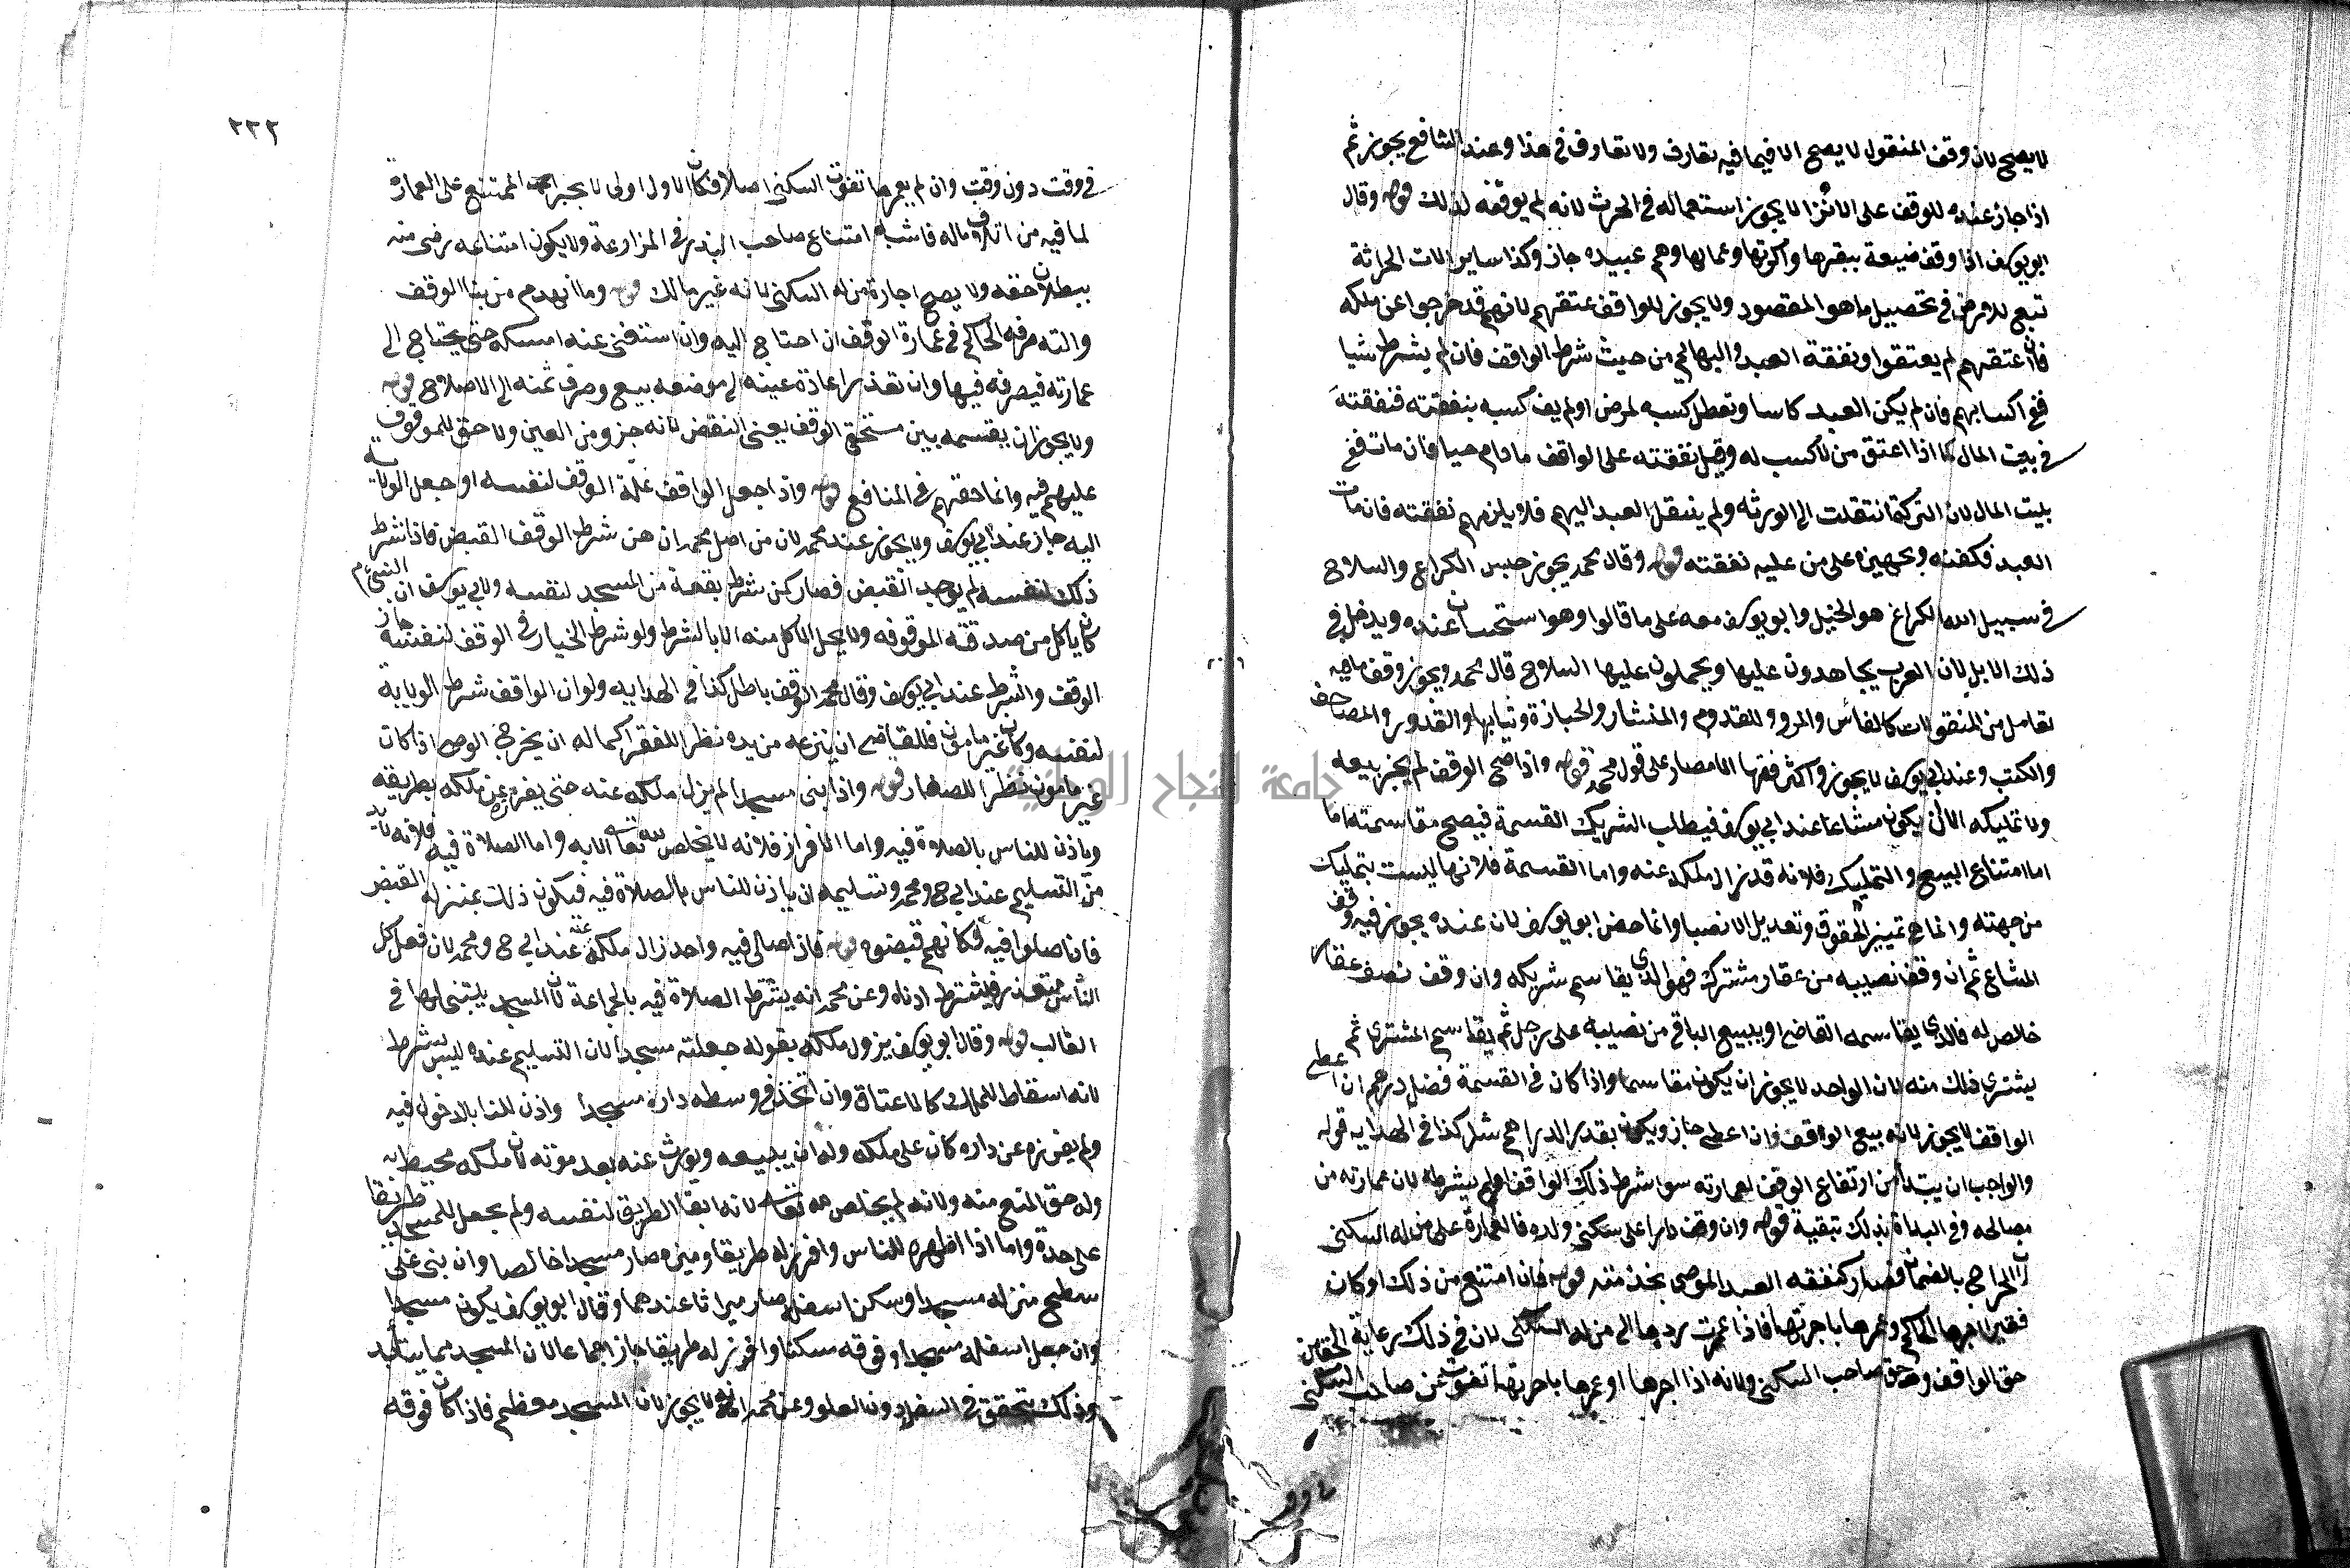 لا يصح لان وقف المنقول لا يصح الا فيما فيه تعارف ولا تعارف في هذا وعند الشافعي يجوز ثم
اذا جاز عنده للوقف على الانزا لا يجوز استعماله في الحرث لانه لم يوقفه لذلك قوله وقال
ابو يوسف اذا وقف ضيعة ببقرها واكرتها وعمالها وهم عبيده جاز وكذا ساير الات الحراثة
تبع للارض في تحصيل ما هو المقصود ولا يجوز للواقف عتقهم لانهم قد خرجوا عن ملكه
فان اعتقهم لم يعتقوا ونفقة العبد والبهايم من حيث شرط الواقف فان لم يشرط شيا
ففي اكسابهم فان لم يكن العبد كاسبا وتعطل كسبه لمرض او لم يف كسبه بنفقته فنفقته
في بيت المال كما اذا اعتق من لا كسب له وقيل نفقته على الواقف ما دام حيا فان مات ففي
بيت المال لان التركة انتقلت الى الورثه ولم ينتقل العبد اليهم فلا يلزمهم نفقته فان مات
العبد فكفنه وتجهيزه على من عليه نفقته قوله وقال محمد يجوز حبس الكراع والسلاح
في سبيل الله الكراع هو الخيل وابو يوسف معه على ما قالوا وهو استحسان عنده ويدخل في
ذلك الابل لان العرب يجاهدون عليها ويحملون عليها السلاح قال محمد ويجوز وقف ما فيه
تعامل من المنقولات كالفاس والمرو والقدوم والمنشار والجنازة وثيابها والقدور والمصاحف
والكتب وعند ابي يوسف لا يجوز واكثر فقها الامصار على قول محمد قوله واذا صح الوقف لم يجز بيعه
ولا تمليكه الا ان يكون مشاعا عند ابي يوسف فيطلب الشريك القسمة فيصح مقاسمته اما
اما امتناع البيع والتمليك فلانه قد زال ملكه عنه واما القسمة فلانها ليست بتمليك
من جهته وانما هي تمييز الحقوق وتعديل الانصبا وانما خص ابو يوسف لان عنده يجوز فيه وقف
المشاع ثم ان وقف نصيبه من عقار مشترك فهو الذي يقاسم شريكه وان وقف نصف عقار
خالص له فالذي يقاسمه القاضي او يبيع الباقي من نصيبه على رجل ثم يقاسم المشتري ثم
يشتري ذلك منه لان الواحد لا يجوز ان يكون مقاسما واذا كان في القسمة فضل درهم ان اعطى
الواقف لا يجوز لانه بيع الوقف وان اعطى جاز ويكون بقدر الدراهم شرا كذا في الهدايه قوله
والواجب ان يبتدأ من ارتفاع الوقف بعمارته سوا شرط ذلك الواقف او لم يشرطه لان عمارته من
مصالحه وفي البداة بذلك تبقية قوله وان وقف دارا على سكنى ولده فالعمارة على من له السكنى
لان الخراج بالضمان فصار كنفقه العبد الموصى بخدمته قوله فان امتنع من ذلك او كان
فقيرا اجرها الحاكم وعمرها باجرتها فاذا عمرت ردها الى من له السكنى لان في ذلك رعاية الحقين
حق الواقف وحق صاحب السكنى ولانه اذا اجرها او عمرها باجرتها تفوت عن صاحب السكنى
٢٢٢
في وقت دون وقت وان لم يعمرها تفوت السكنى اصلا فكان الاول اولى لا يجبر الممتنع على العمارة
لما فيه من اتلاف ماله فاشبه امتناع صاحب البذر في المزارعة ولا يكون امتناعه رضى منه
ببطلان حقه ولا يصح اجارة من له السكنى لانه غير مالك قوله وما انهدم من بنا الوقف
والته صرفه الحاكم في عمارة الوقف ان احتاج اليه وان استغنى عنه امسكه حتى يحتاج الى
عمارته فيصرفه فيها وان تعذر اعادة عينه الى موضعه بيع وصرف ثمنه الى الاصلاح قوله
ولا يجوز ان يقسمه بين مستحقي الوقف يعني النقض لانه جزو من العين ولا حق للموقوف
عليهم فيه وانما حقهم في المنافع قوله واذا جعل الواقف غلة الوقف لنفسه او جعل الولاية
اليه جاز عند ابي يوسف ولا يجوز عند محمد لان من اصل محمد ان من شرط الوقف القبض فاذا شرط
ذلك لنفسه لم يوجد القبض فصار كمن شرط بقعة من المسجد لنفسه ولابي يوسف ان النبي م
كان ياكل من صدقته الموقوفه ولا يحل الاكل منه الا بالشرط ولو شرط الخيار في الوقف لنفسه جاز
الوقف والشرط عند ابي يوسف وقال محمد الوقف باطل كذا في الهدايه ولو ان الواقف شرط الولاية
لنفسه وكان غير مامون فللقاضي ان ينزعه من يده نظرا للفقرا كما له ان يخرج الوصي اذا كان
غير مامون نظرا للصغار قوله واذا بنى مسجدا لم يزل ملكه عنه حتى يفرزه عن ملكه بطريقه
وياذن للناس بالصلاة فيه واما الافراز فلانه لا يخلص لله تعالى الا به واما الصلاة فيه فلانه لا بد
من التسليم عند ابي ح ومحمد وتسليمه ان ياذن للناس بالصلاة فيه فيكون ذلك بمنزله القبض
فاذا صلوا فيه فكانهم قبضوه قوله فاذا صلى فيه واحد زال ملكه عنه عند ابي ح ومحمد لان فعل كل
الناس متعذر فيشترط ادناه وعن محمد انه يشترط الصلاة فيه بالجماعة لان المسجد يبتنى لها في
الغالب قوله وقال ابو يوسف يزول ملكه بقوله جعلته مسجدا لان التسليم عنده ليس بشرط
لانه اسقاط للملك كالاعتاق وان اتخذ في وسطه داره مسجدا واذن للنا بالدخول فيه
ولم يفرزه عن داره كان على ملكه وله ان يبيعه ويورث عنه بعد موته لان ملكه محيط به
وله حق المنع منه ولانه لم يخلص لله تعالى لانه ابقا الطريق لنفسه ولم يجعل للمسجد طريقا
على حدة واما اذا اظهره للناس وافرز له طريقا وميزه صار مسجدا خالصا وان بنى على
سطح منزله مسجدا وسكن اسفله صار ميراثا عندهما وقال ابو يوسف يكون مسجدا
وان جعل اسفله مسجدا وفوقه سكنا وافرز له طريقا جاز اجماعا لان المسجد مما يتابد
وذلك يتحقق في السفل دون العلو وعن محمد انه لا يجوز لان المسجد معظم فاذا كان فوقه
جامعة النجاح الوطنية